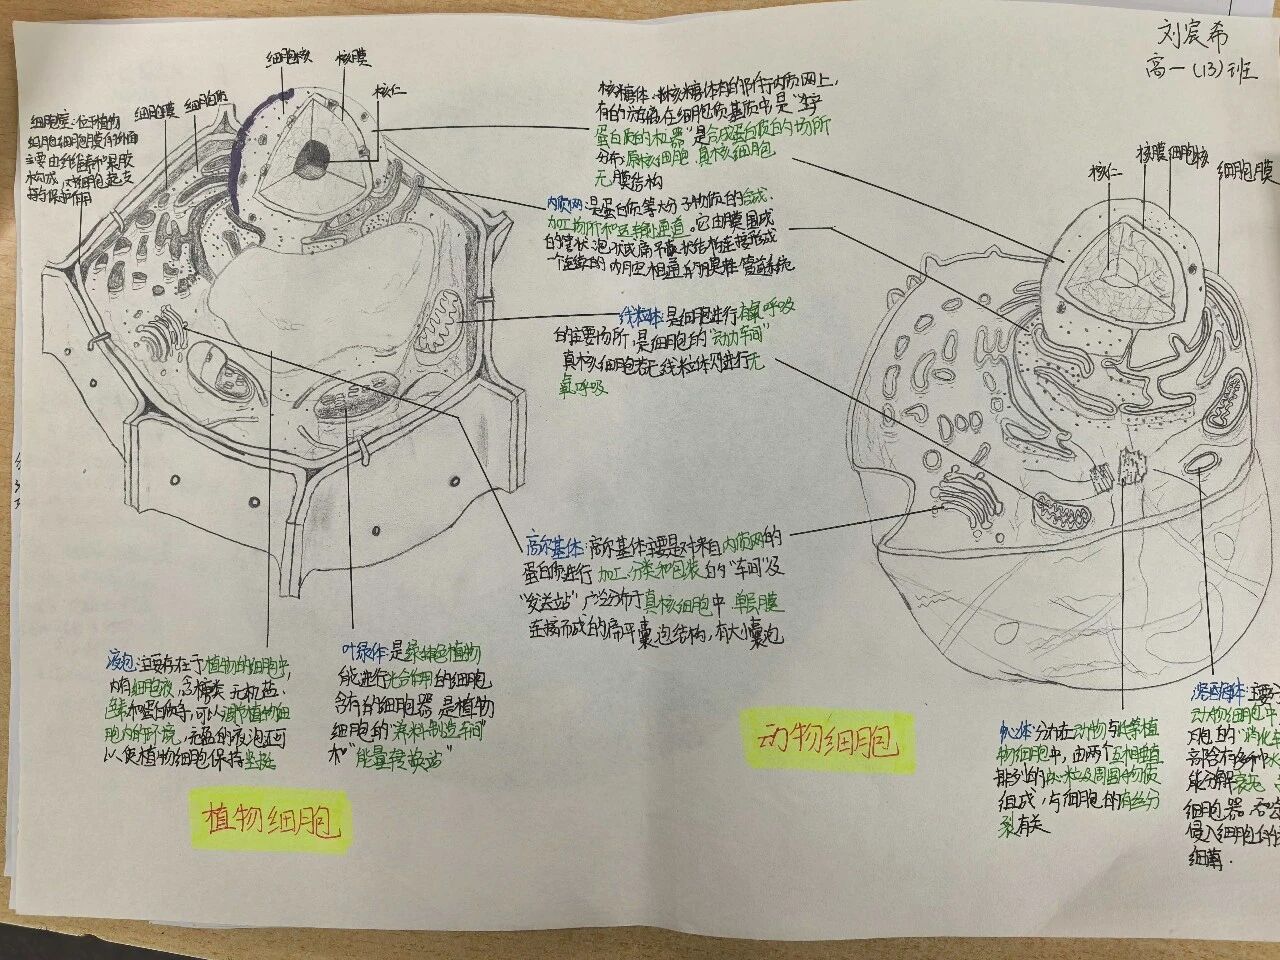 刘宸希
高一(13)班
细胞核
核膜
核仁
细胞膜
细胞质
细胞壁:位于植物
细胞细胞膜的外面
主要由纤维素和果胶
构成,对细胞起支
持与保护作用
核糖体:有的附行内质网上,
有的游离在细胞质基质中是"生产
蛋白质的机器"是合成蛋白质的场所
分布:原核细胞、真核细胞
无膜结构
内质网:是蛋白质等大分子物质的合成、
加工场所和运输通道。它由膜围成
的管状、泡状或扁平囊状结构连接形成
一个连续的内腔相通的膜性管道系统
线粒体:是细胞进行有氧呼吸
的主要场所,是细胞的"动力车间"
真核细胞若无线粒体只进行无
氧呼吸
高尔基体:高尔基体主要是对来自内质网的
蛋白质进行加工、分类和包装的"车间"及
"发送站"广泛分布于真核细胞中 单层膜
连接而成的扁平囊泡结构,有大小囊泡
液泡:主要存在于植物的细胞中,
内有细胞液,含糖类、无机盐、
色素和蛋白质等,可以调节植物细
胞内的环境,充盈的液泡还可
以使植物细胞保持坚挺
叶绿体:是绿色植物
能进行光合作用的细胞
含有的细胞器,是植物
细胞的"养料制造车间"
和"能量转换站"
植物细胞
核仁
核膜
细胞核
细胞膜
动物细胞
中心体:分布在动物与低等植
物细胞中,由两个互相垂直
排列的中心粒及周围物质
组成,与细胞的有丝分
裂有关
溶酶体:主要
动物细胞中
胞的"消化
部含有多种水
能分解衰老、
细胞器,吞
侵入细胞的
细菌.